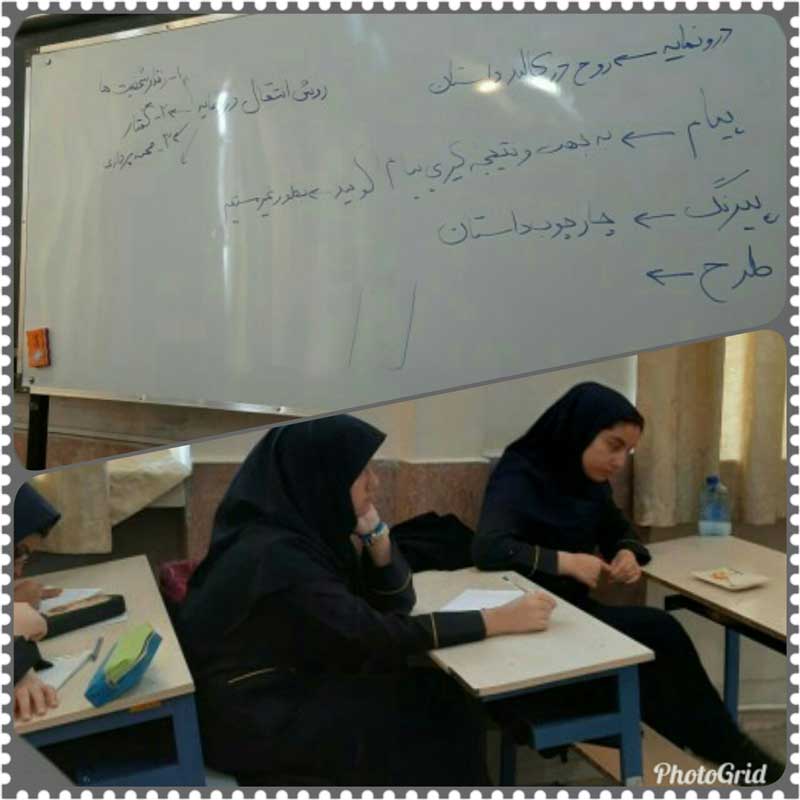 درونمایه ← روح در کالبد داستان
روش انتقال درونمایه
۱- رفتار شخصیت ها
۲- گفتار
۳- صحنه پردازی
پیام ← نتیجه گیری پیام گویند ← بطور غیر مستقیم
پیرنگ ← چارچوب داستان
طرح ←
PhotoGrid